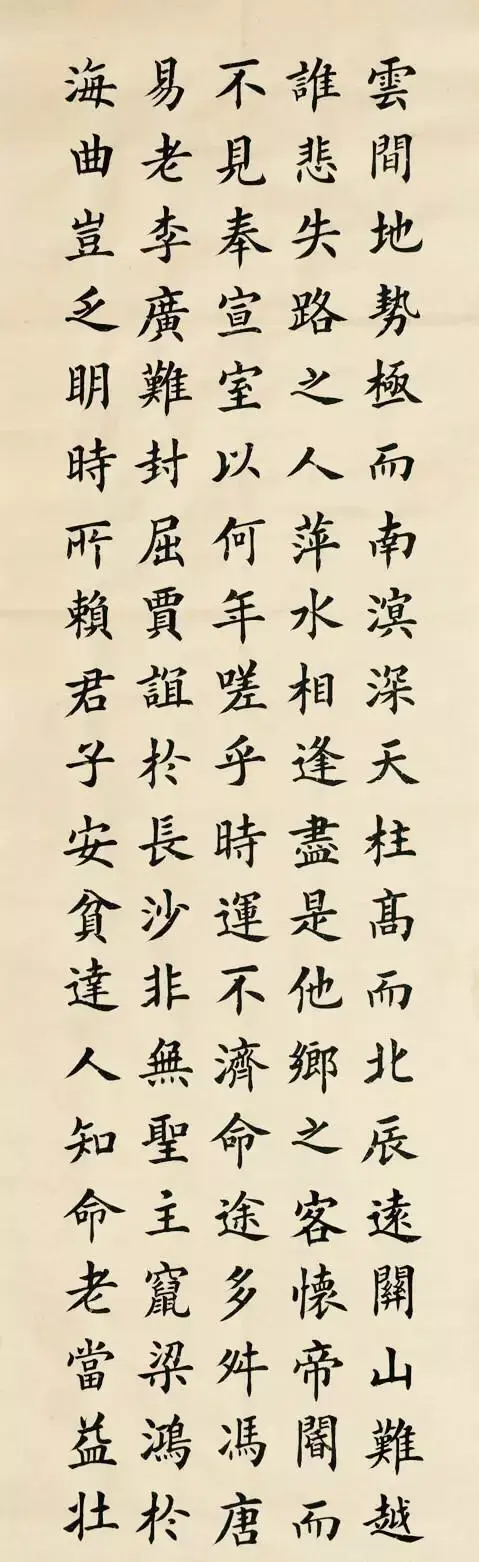 雲間地勢極而南溟深天柱髙而北辰遠關山難越
誰悲失路之人萍水相逢盡是他鄉之客懷帝閽而
不見奉宣室以何年嗟乎時運不濟命途多舛馮唐
易老李廣難封屈賈誼於長沙非無聖主竄梁鴻於
海曲豈乏明時所賴君子安貧達人知命老當益壯